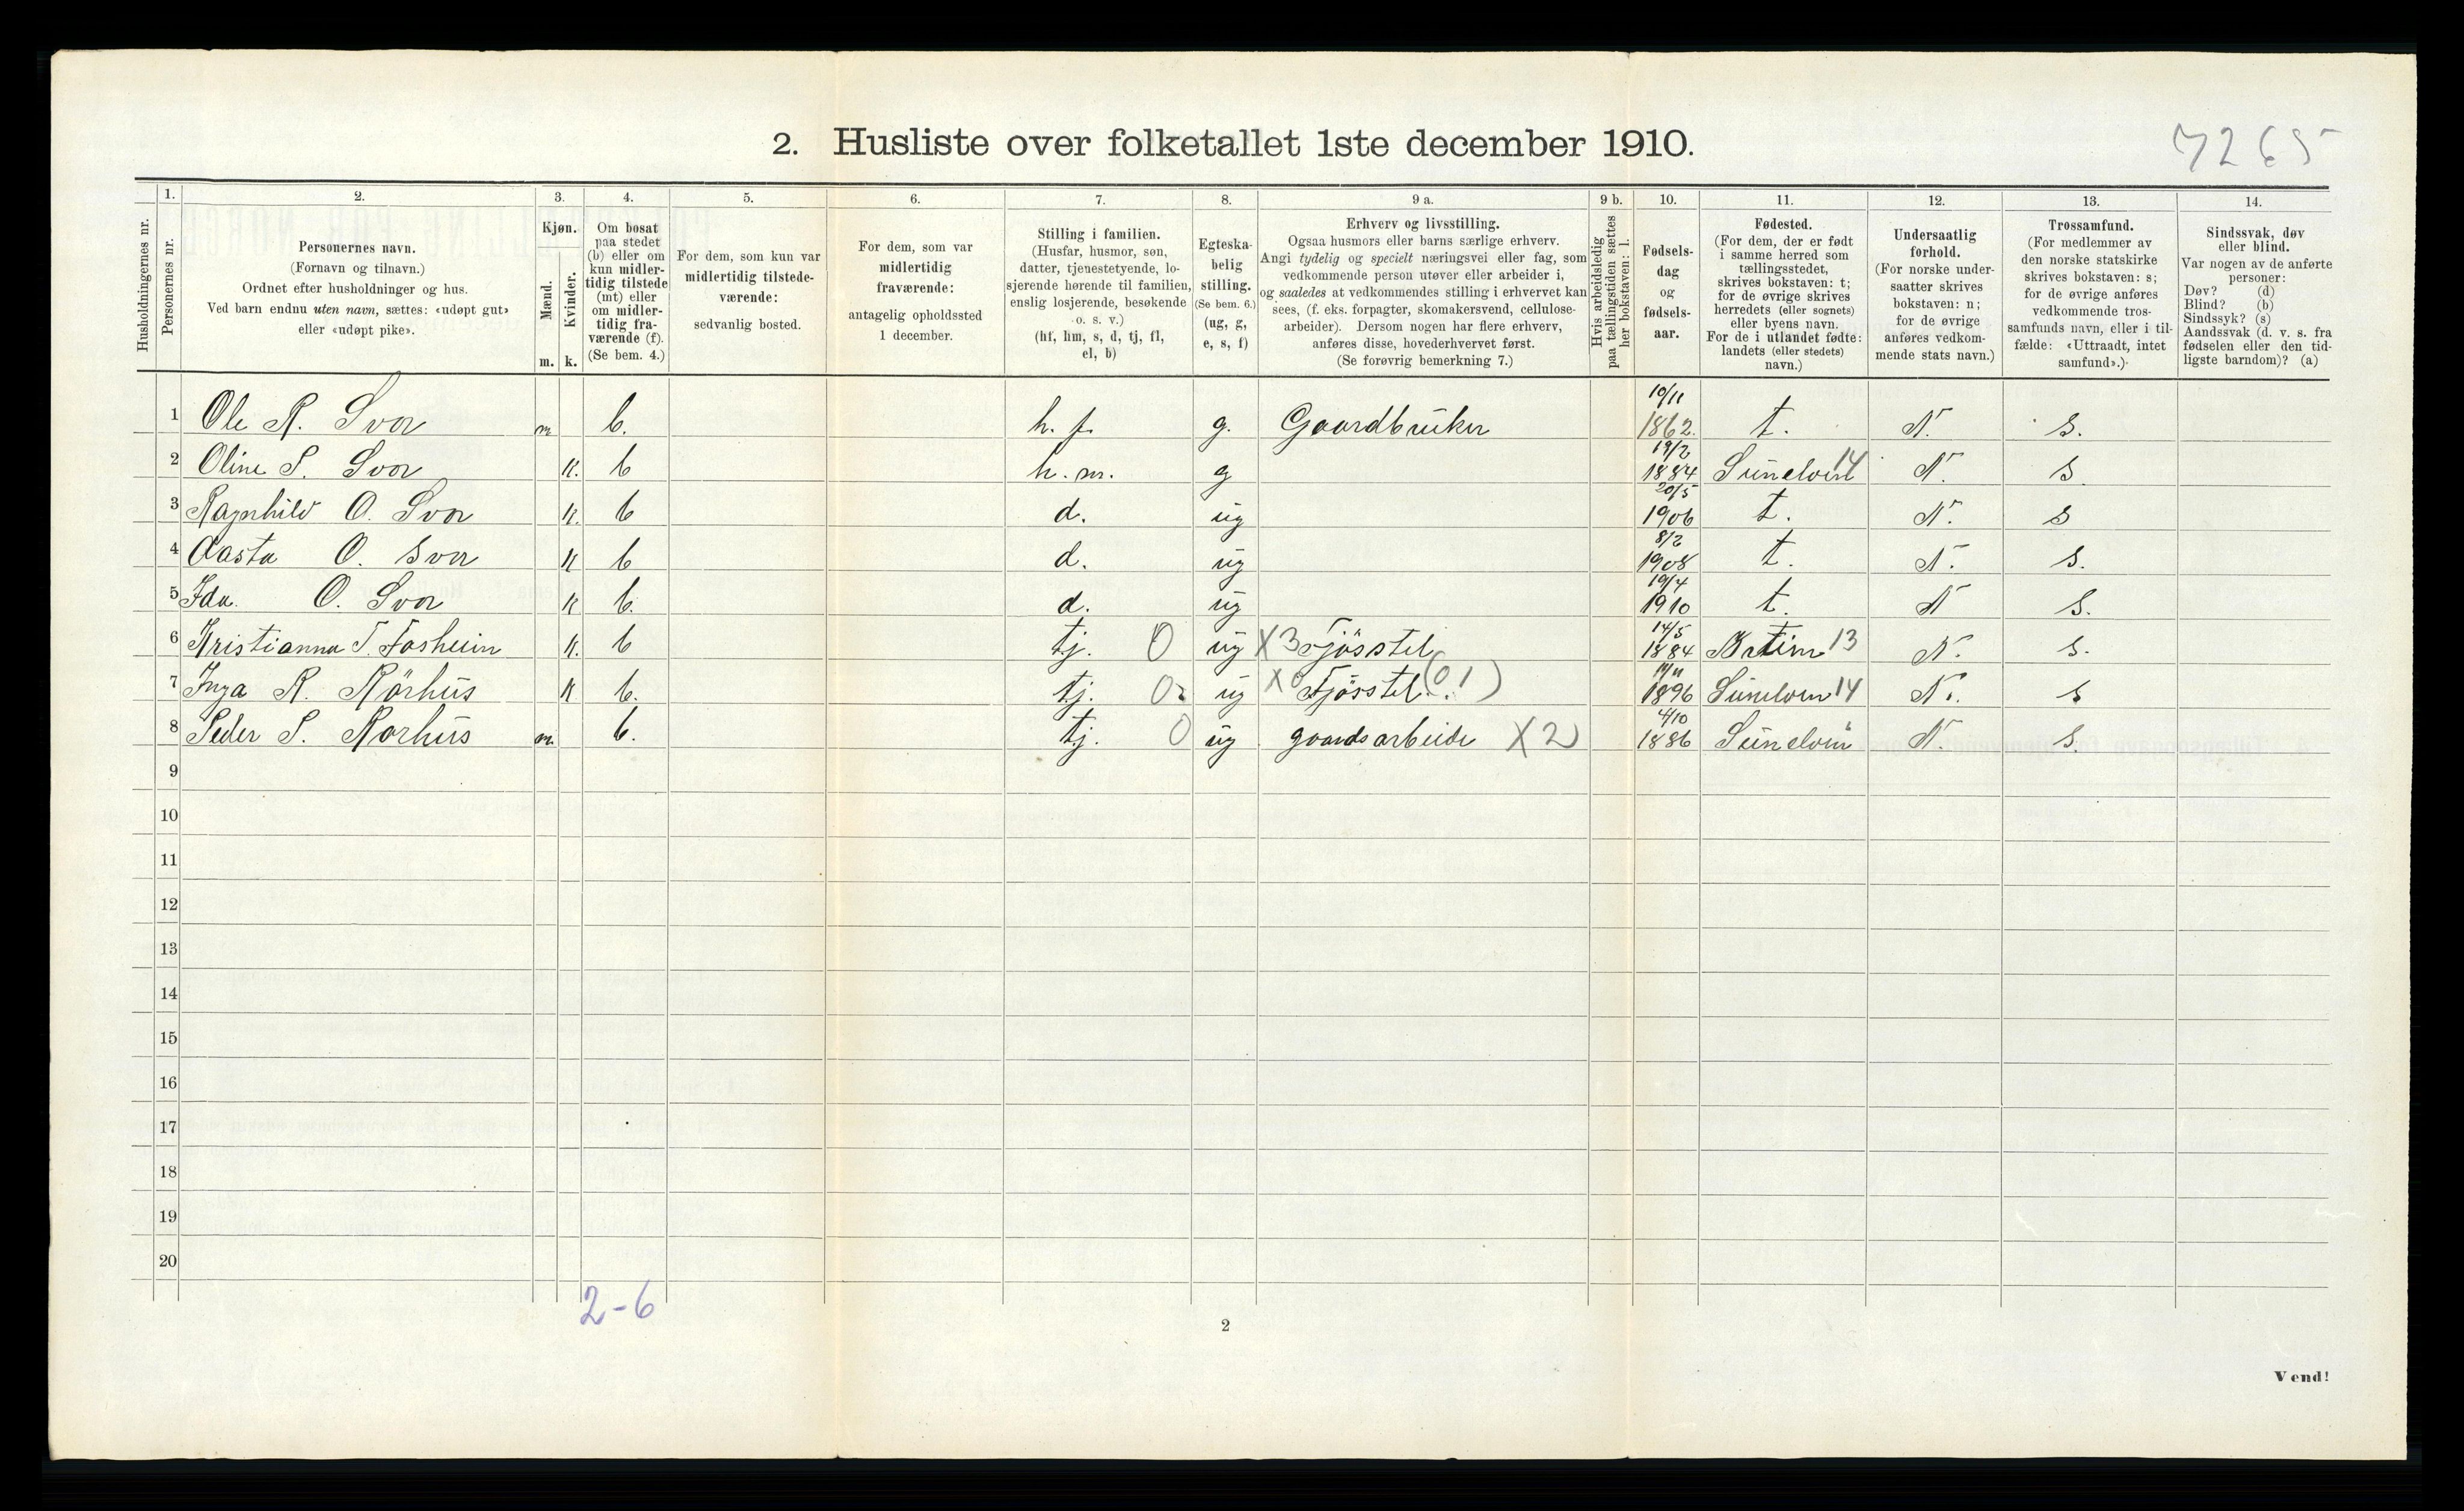 7265
2. Husliste over folketallet 1ste december 1910.
Husholdningernes nr.
1.
Personernes nr.
2.
Personernes navn.
(Fornavn og tilnavn.)
Ordnet efter husholdninger og hus.
Ved barn endnu uten navn, sættes: «udøpt gut»
eller «udøpt pike».
3.
Kjøn.
Mænd.
Kvinder.
m. k.
4.
Om bosat
paa stedet
(b) eller om
kun midler-
tidig tilstede
(mt) eller
om midler-
tidig fra-
værende (f).
(Se bem. 4.)
5.
For dem, som kun var
midlertidig tilstede-
værende:
sedvanlig bosted.
6.
For dem, som var
midlertidig
fraværende:
antagelig opholdssted
1 december.
7.
Stilling i familien.
(Husfar, husmor, søn,
datter, tjenestetyende, lo-
sjerende hørende til familien,
enslig losjerende, besøkende
o. s. v.)
(hf, hm, s, d, tj, fl,
el, b)
8.
Egteska-
belig
stilling.
(Se bem. 6.)
(ug, g,
e, s, f)
9 a.
Erhverv og livsstilling.
Ogsaa husmors eller barns særlige erhverv.
Angi tydelig og specielt næringsvei eller fag, som
vedkommende person utøver eller arbeider i,
og saaledes at vedkommendes stilling i erhvervet kan
sees, (f. eks. forpagter, skomakersvend, cellulose-
arbeider). Dersom nogen har flere erhverv,
anføres disse, hovederhvervet først.
(Se forøvrig bemerkning 7.)
9 b.
Hvis arbeidsledig
paa tællingstiden sættes
her bokstaven: l.
10.
Fødsels-
dag
og
fødsels-
aar.
11.
Fødested.
(For dem, der er født
i samme herred som
tællingsstedet,
skrives bokstaven: t;
for de øvrige skrives
herredets (eller sognets)
eller byens navn.
For de i utlandet fødte:
landets (eller stedets)
navn.)
12.
Undersaatlig
forhold.
(For norske under-
saatter skrives
bokstaven: n;
for de øvrige
anføres vedkom-
mende stats navn.)
13.
Trossamfund.
(For medlemmer av
den norske statskirke
skrives bokstaven: s;
for de øvrige anføres
vedkommende tros-
samfunds navn, eller i til-
fælde: «Uttraadt, intet
samfund».)
14.
Sindssvak, døv
eller blind.
Var nogen av de anførte
personer:
Døv? (d)
Blind? (b)
Sindssyk? (s)
Aandssvak (d. v. s. fra
fødselen eller den tid-
ligste barndom)? (a)
1 Ole R. Svor m b. h. f. g. Gaardbruker 10/11 1862. t. N. s.
2 Oline S. Svor K. b h. m. g 19/2 1884 Sunelven 14 N. s.
3 Ragnhild O. Svor K. b d. ug 20/5 1906 t. N. s
4 Aasta O. Svor K b d. ug 8/2 1908 t. N. s.
5 Ida. O. Svor K b. d. ug 19/4 1910 t. N s.
6 Kristianna T. Fosheim K. b tj. 0 ug X3 Fjösstel 14/5 1884 13 N. s.
7 Inga R. Rörhus K b. tj. 0 ug X0 Fjösstel. (01) 1896 Sunelven 14 N. s
8 Peder S. Rorhus m. b. tj. 0 ug gaardsarbeide X2 4/10 1886 Sunelven " N. s.
9
10
11
12
13
14
15
16
17
18
19
20
2-6
2
Vend!